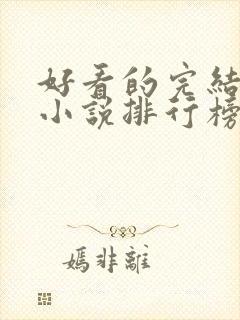 好看的完結
小說排行榜
嫣非離